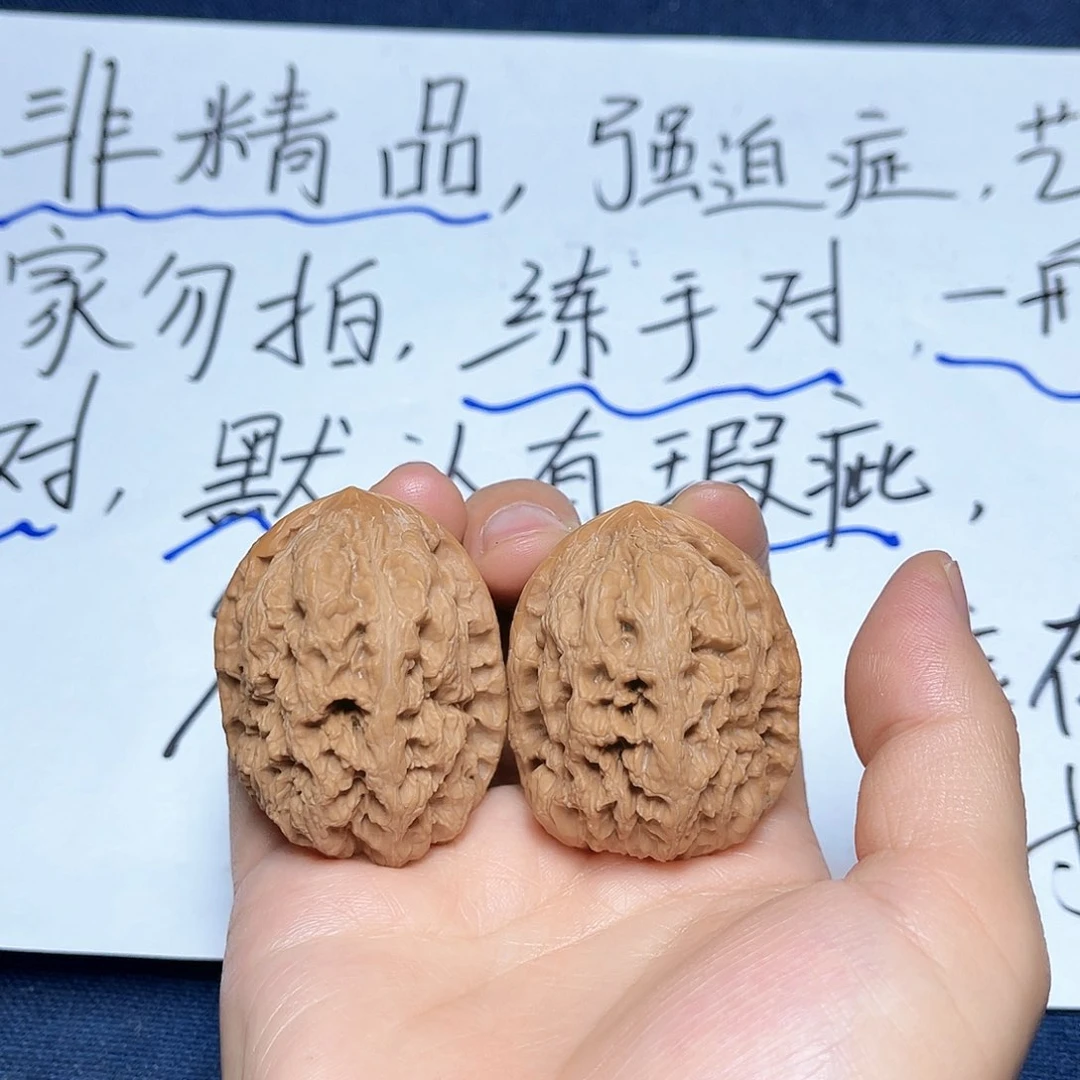 非精品，强迫症，艺
家勿拍，练手对，一般
对，默认有瑕疵，